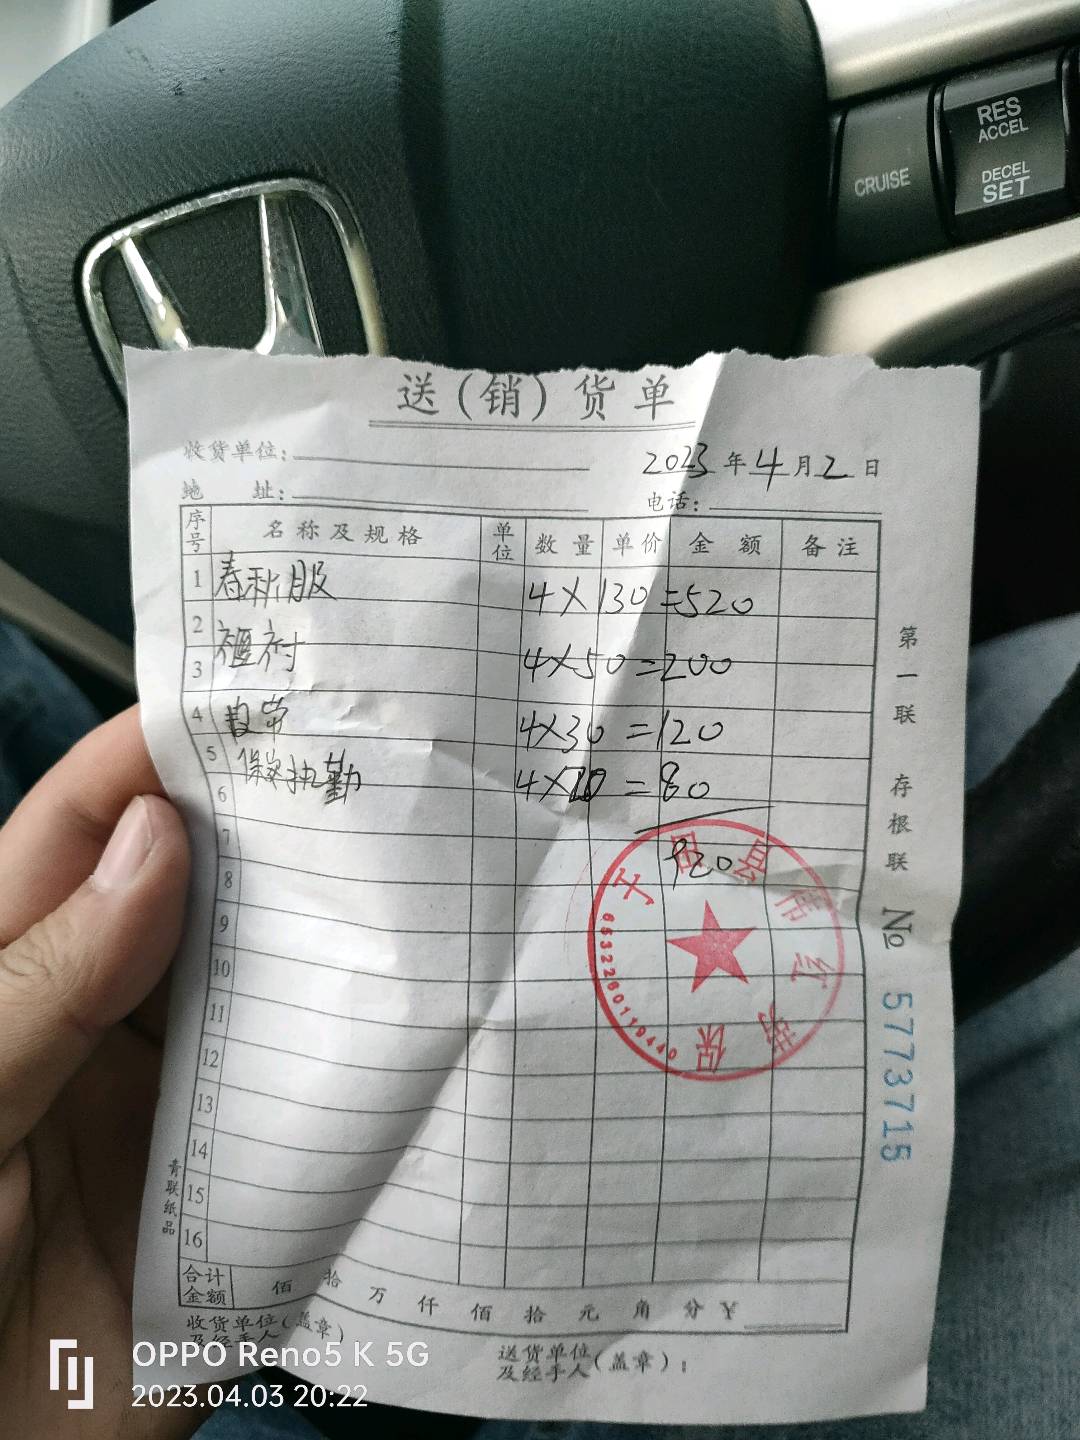 RES
ACCEL
CRUISE
DECEL
SET
送(销)货单
收货单位:
2023年4月2日
地 址:
电话:
序号 名称及规格 单位 数量 单价 金额 备注
1 春秋服 4×130=520
2
3 衬 4×50=200
4 4×30=120
5 保安执勤 4×20=80
6
7 920
8
9
10
11
12
13
14
15
16
合计金额 佰 拾 万 仟 佰 拾 元 角 分 ¥
收货单位(盖章)
及经手人
送货单位(盖章):
及经手人
第一联 存根联 № 5773715
青联纸品
于田县伟红劳保
6532260119440
OPPO Reno5 K 5G
2023.04.03 20:22